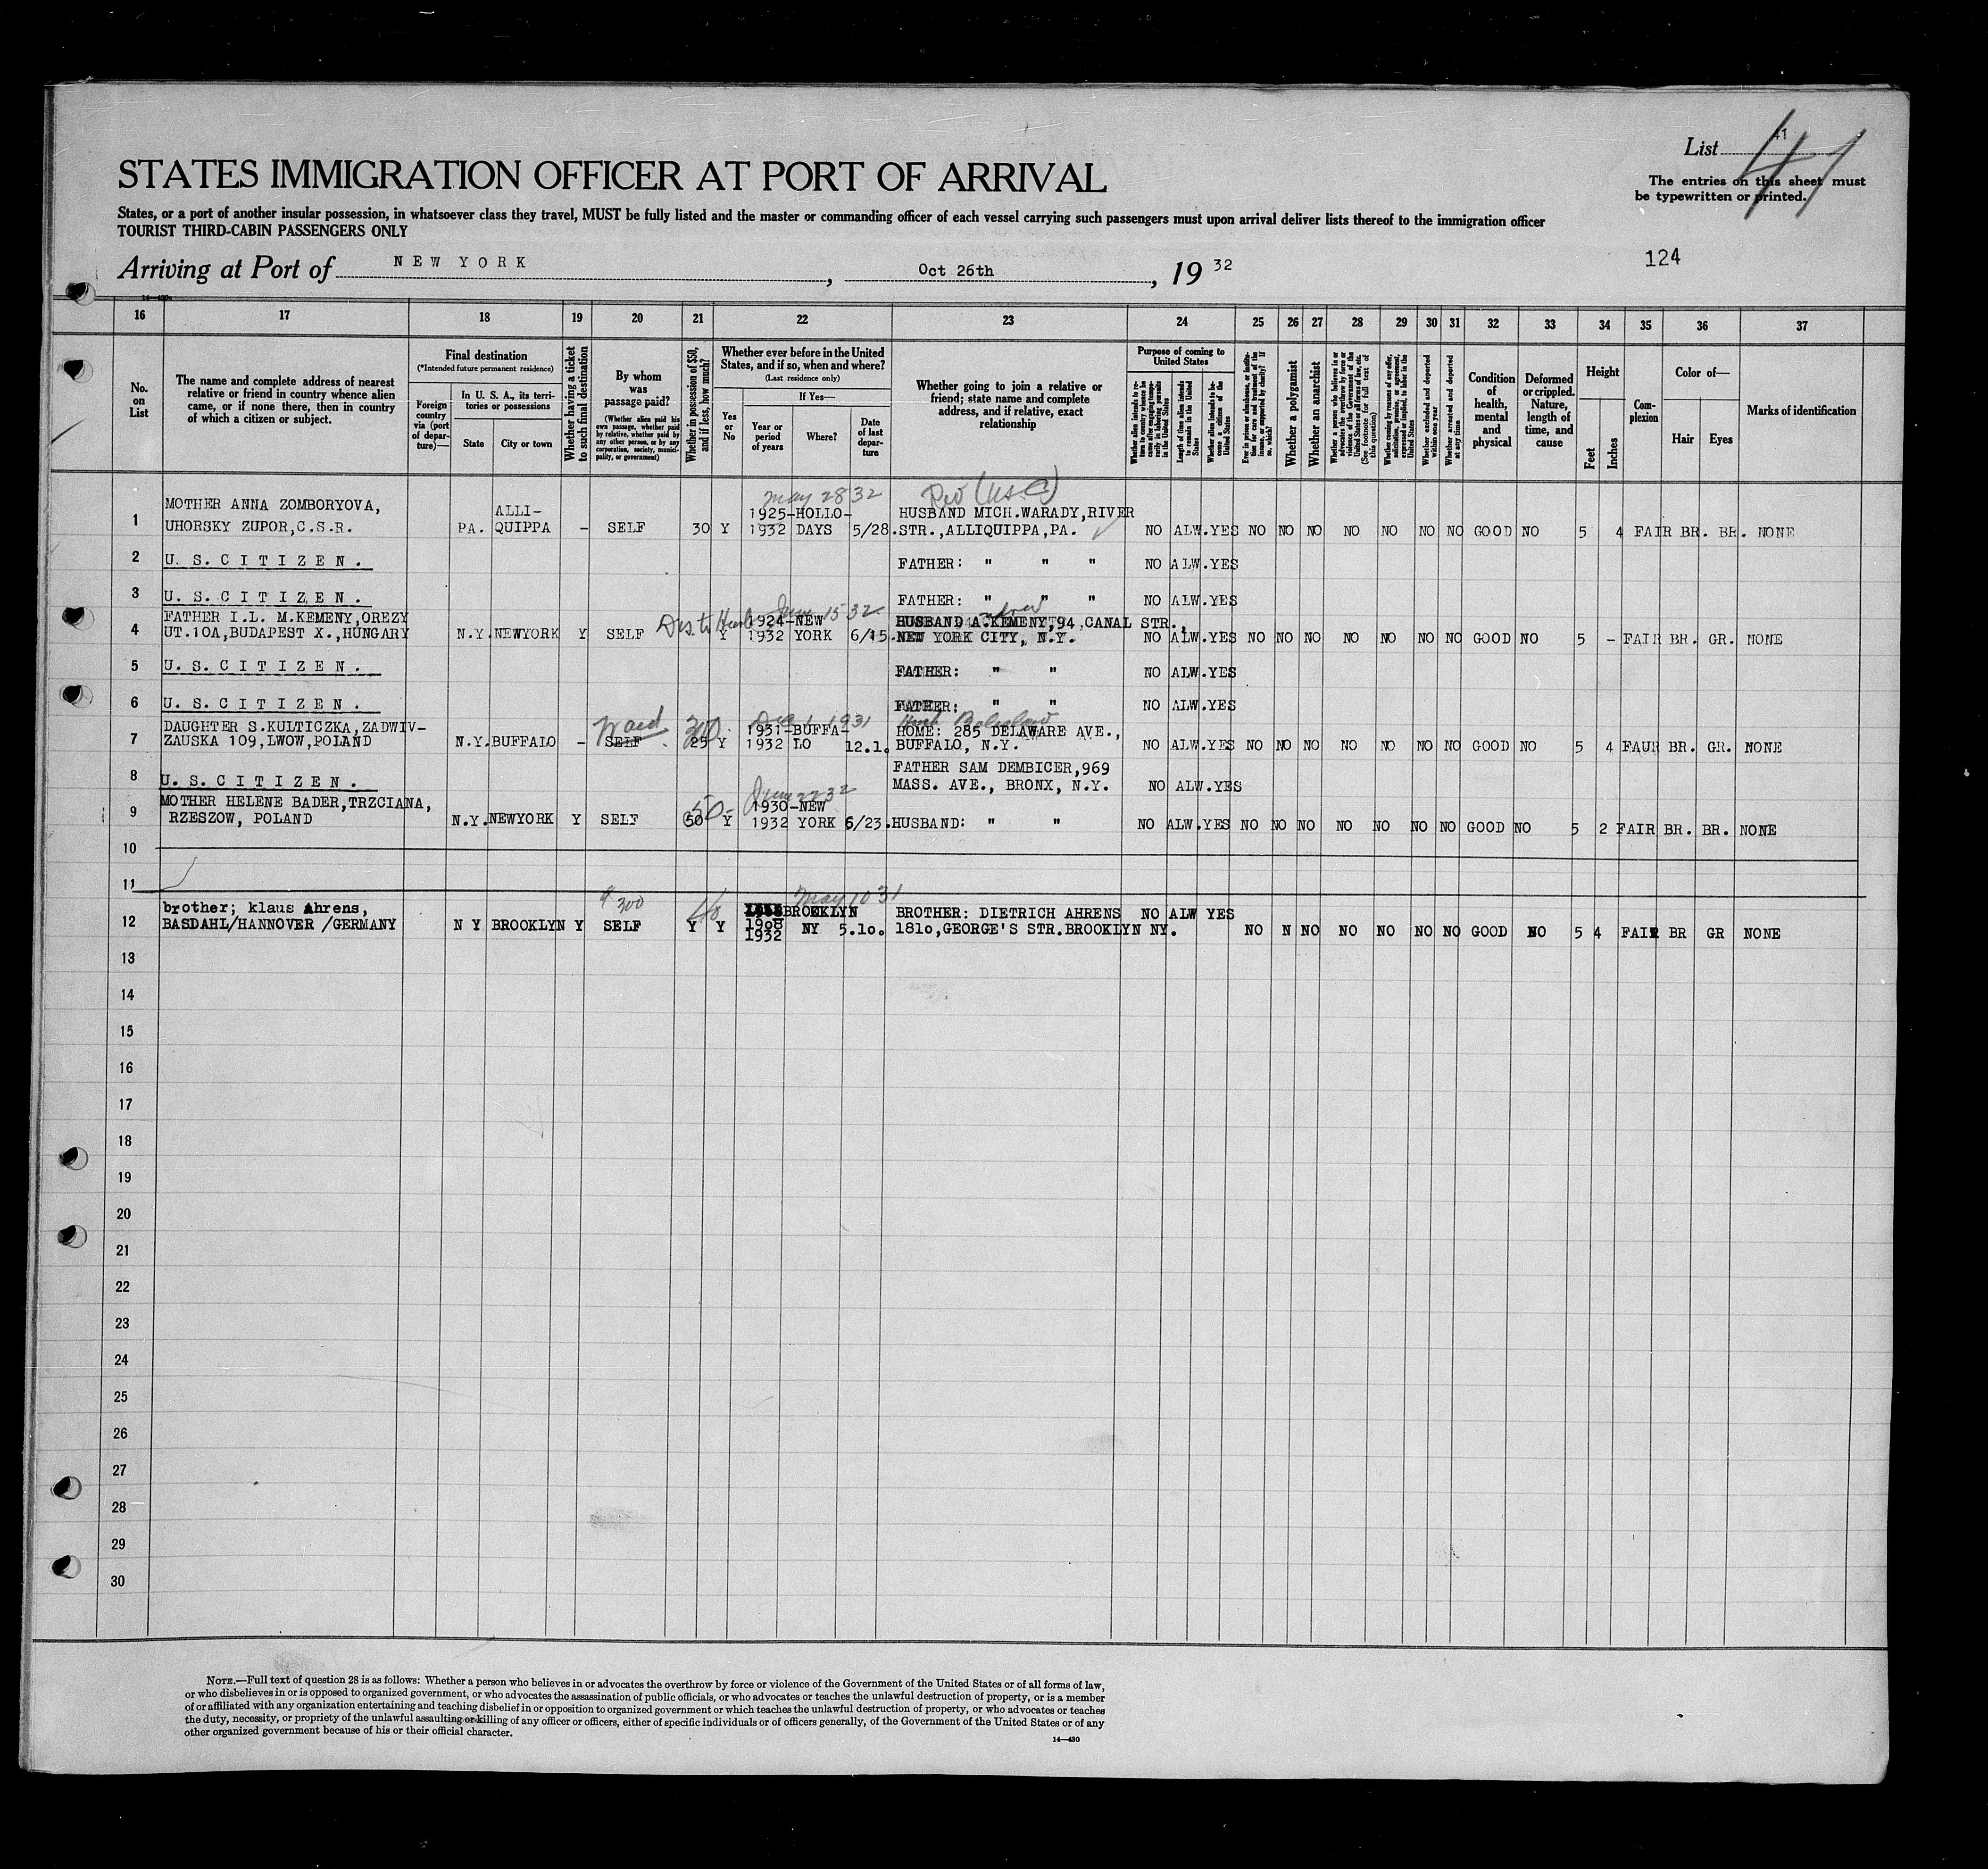 List 41
41
The entries on this sheet must
be typewritten or printed.
STATES IMMIGRATION OFFICER AT PORT OF ARRIVAL
States, or a port of another insular possession, in whatsoever class they travel, MUST be fully listed and the master or commanding officer of each vessel carrying such passengers must upon arrival deliver lists thereof to the immigration officer
TOURIST THIRD-CABIN PASSENGERS ONLY
124
Arriving at Port of NEW YORK, Oct 26th, 19 32
14—430
16 17 18 19 20 21 22 23 24 25 26 27 28 29 30 31 32 33 34 35 36 37
No. on List
The name and complete address of nearest relative or friend in country whence alien came, or if none there, then in country of which a citizen or subject.
Final destination
(*Intended future permanent residence)
Foreign country via (port of departure)—
In U. S. A., its territories or possessions
State
City or town
Whether having a ticket to such final destination
By whom was passage paid?
(Whether alien paid his own passage, whether paid by relative, whether paid by any other person, or by any corporation, society, municipality, or government)
Whether in possession of $50, and if less, how much?
Whether ever before in the United States, and if so, when and where?
(Last residence only)
Yes or No
If Yes—
Year or period of years
Where?
Date of last departure
Whether going to join a relative or friend; state name and complete address, and if relative, exact relationship
Purpose of coming to United States
Whether alien intends to return to country whence he came after engaging temporarily in laboring pursuits in the United States
Length of time alien intends to remain in the United States
Whether alien intends to become a citizen of the United States
Ever in prison or almshouse, or institution for care and treatment of the insane, or supported by charity? If so, which?
Whether a polygamist
Whether an anarchist
Whether a person who believes in or advocates the overthrow by force or violence of the Government of the United States or all forms of law, etc. (See footnote for full text of this question)
Whether coming by reason of any offer, solicitation, promise, or agreement, expressed or implied, to labor in the United States
Whether excluded and deported within one year
Whether arrested and deported at any time
Condition of health, mental and physical
Deformed or crippled. Nature, length of time, and cause
Height
Feet
Inches
Complexion
Color of—
Hair
Eyes
Marks of identification
May 28 32 (U.S.C)
MOTHER ANNA ZOMBORYOVA, ALLI- 1925-HOLLO- HUSBAND MICH.WARADY,RIVER
1 UHORSKY ZUPOR,C.S.R. PA. QUIPPA - SELF 30 Y 1932 DAYS 5/28. STR.,ALLIQUIPPA,PA. NO ALW.YES NO NO NO NO NO NO NO GOOD NO 5 4 FAIR BR. BR. NONE
2 U. S. C I T I Z E N . FATHER: " " " NO ALW.YES
3 U. S. C I T I Z E N . FATHER: " " " NO ALW.YES
June 15 32 Andrew
FATHER I.L. M.KEMENY,OREZY 1924-NEW HUSBAND A.KEMENY,94,CANAL STR.,
4 UT.10A,BUDAPEST X.,HUNGARY N.Y. NEWYORK Y SELF Y 1932 YORK 6/15. NEW YORK CITY, N.Y. NO ALW.YES NO NO NO NO NO NO NO GOOD NO 5 - FAIR BR. GR. NONE
5 U. S. C I T I Z E N . FATHER: " " NO ALW.YES
6 U. S. C I T I Z E N . FATHER: " " NO ALW.YES
300 Dec 1 1931 Husb Boleslaw
DAUGHTER S.KULTICZKA,ZADWIV- 1931-BUFFA- HOME: 285 DELAWARE AVE.,
7 ZAUSKA 109,LWOW,POLAND N.Y. BUFFALO - SELF 25 Y 1932 LO 12.1. BUFFALO, N.Y. NO ALW.YES NO NO NO NO NO NO NO GOOD NO 5 4 FAUR BR. GR. NONE
FATHER SAM DEMBICER,969
8 U. S. C I T I Z E N . MASS. AVE., BRONX, N.Y. NO ALW.YES
50- June 22 32
MOTHER HELENE BADER,TRZCIANA, 1930-NEW
9 RZESZOW, POLAND N.Y. NEWYORK Y SELF 50 Y 1932 YORK 6/23. HUSBAND: " " NO ALW.YES NO NO NO NO NO NO NO GOOD NO 5 2 FAIR BR. BR. NONE
10
11
$ 300 40 May 10 31
brother; klaus Ahrens, BROOKLYN BROTHER: DIETRICH AHRENS NO ALW YES
12 BASDAHL/HANNOVER /GERMANY N Y BROOKLYN Y SELF Y Y 1908 NY 5.10. 1810,GEORGE'S STR.BROOKLYN NY. NO N NO NO NO NO NO GOOD NO 5 4 FAIR BR GR NONE
1932
13
14
15
16
17
18
19
20
21
22
23
24
25
26
27
28
29
30
NOTE.—Full text of question 28 is as follows: Whether a person who believes in or advocates the overthrow by force or violence of the Government of the United States or of all forms of law,
or who disbelieves in or is opposed to organized government, or who advocates the assassination of public officials, or who advocates or teaches the unlawful destruction of property, or is a member
of or affiliated with any organization entertaining and teaching disbelief in or opposition to organized government or which teaches the unlawful destruction of property, or who advocates or teaches
the duty, necessity, or propriety of the unlawful assaulting or killing of any officer or officers, either of specific individuals or of officers generally, of the Government of the United States or of any
other organized government because of his or their official character.
14—430